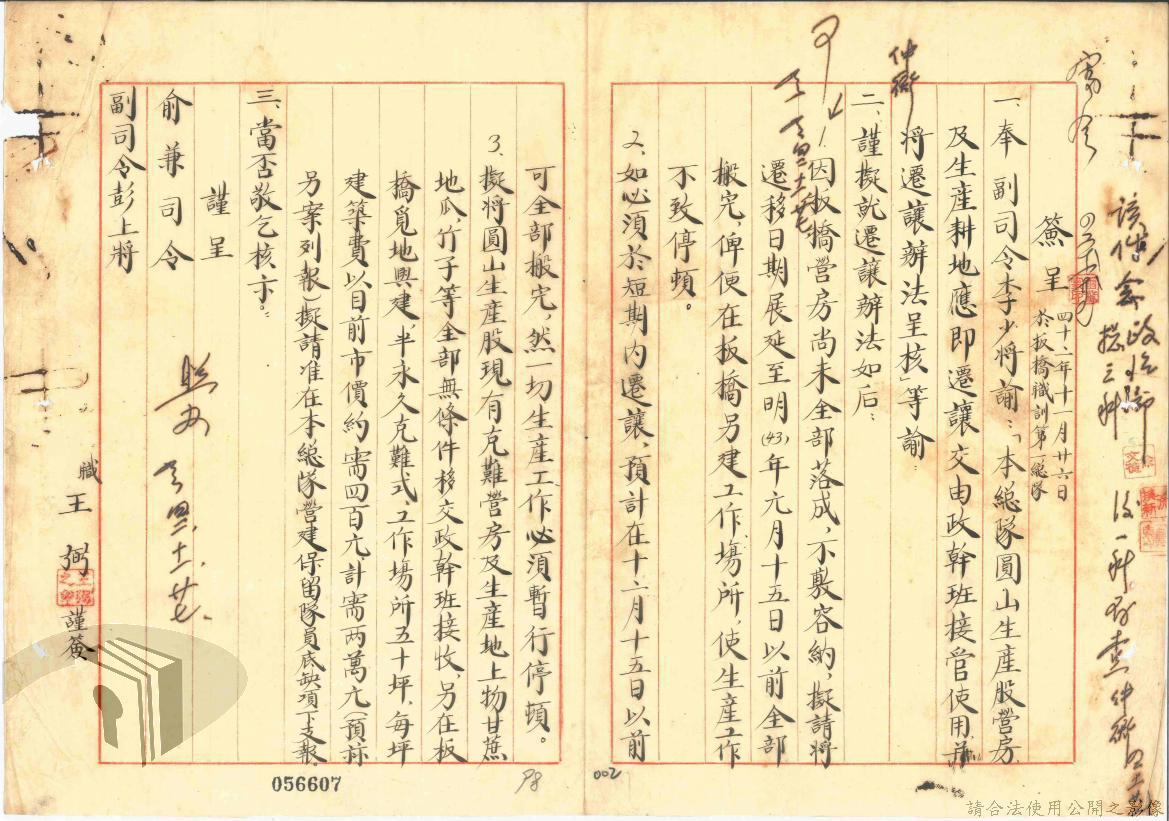 簽呈
四十二年十一月廿六日
於板橋職訓第一總隊
一、奉 副司令李少將諭：「本總隊圓山生產股營房
及生產耕地應即遷讓交由政幹班接管使用，並
將遷讓辦法呈核」等諭
二、謹擬就遷讓辦法如后：
1.因板橋營房尚未全部落成，不敷容納，擬請將
遷移日期展延至明(43)年元月十五日以前全部
搬完俾便在板橋另建工作場所，使生產工作
不致停頓。
2.如必須於短期內遷讓，預計在十二月十五日以前
可全部搬完，然一切生產工作必須暫行停頓。
3.擬將圓山生產股現有克難營房及生產地上物甘蔗
地瓜，竹子等全部無條件移交政幹班接收，另在板
橋覓地興建，半永久克難式，工作場所五十坪，每坪
建築費以目前市價約需四百元計需兩萬元（預祘
另案列報）擬請准在本總隊營建保留隊員底缺項下支報。
三、當否敬乞核示。
謹呈
俞兼司令
副司令彭上將
職 王弼 謹簽
仲衡
可
056607
P8
002
請合法使用公開之影像